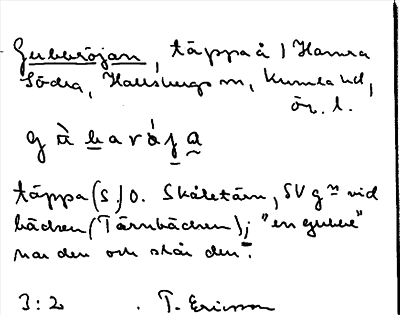 Gubbröjan, täppa å 1 Hamra
Södra, Hallsbergs sn, Kumla hd,
ör. l.
gùbaròja
täppa (S.) O. Skåletärn, SV gn vid
bäcken (Tärnbäcken); "en gubbe"
har den och skär den".
3:2 . T. Ericsson